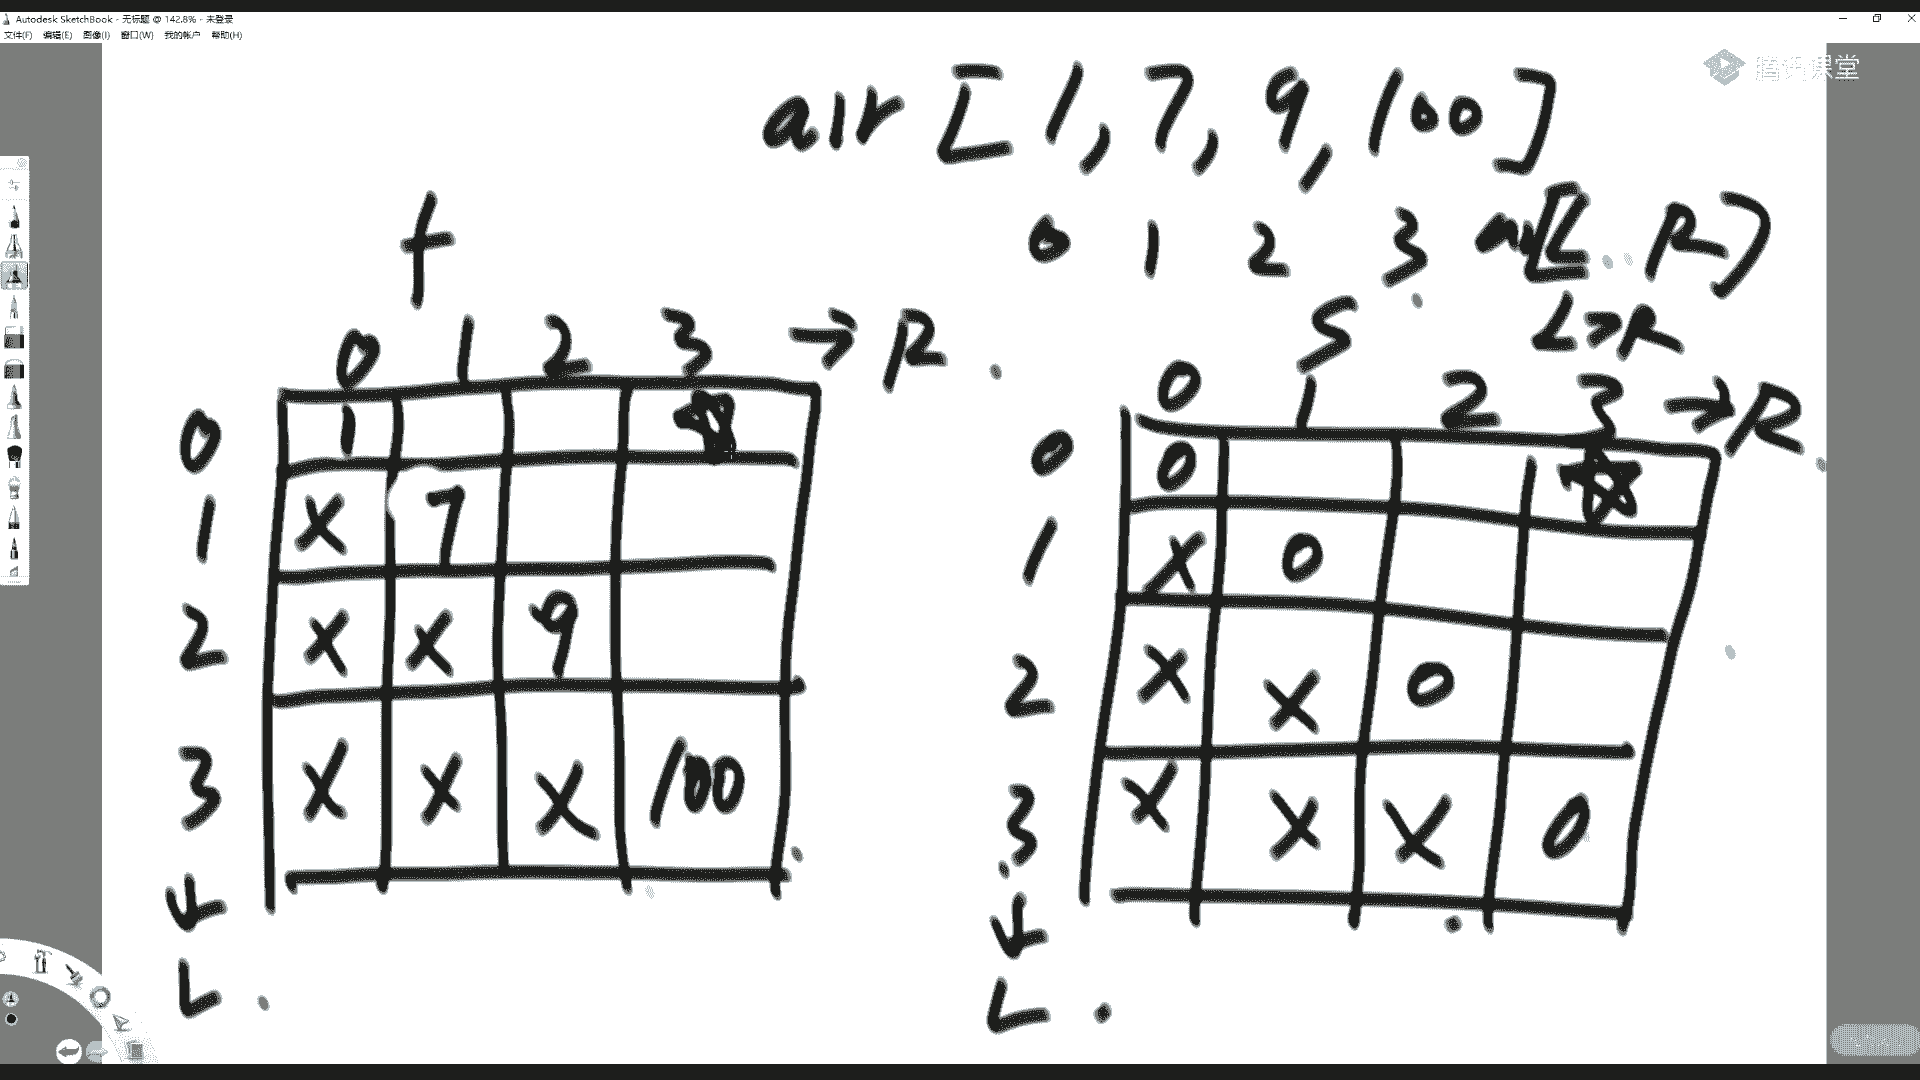 Autodesk SketchBook - 无标题 @ 142.8% - 未登录
文件(F) 编辑(E) 图像(I) 窗口(W) 我的帐户 帮助(H)
腾讯课堂
arr [1, 7, 9, 100]
0 1 2 3 arr[L..R]
L>R
f
0 1 2 3 → R
0 1
1 X 7
2 X X 9
3 X X X 100
↓
L
S
0 1 2 3 → R
0 0
1 X 0
2 X X 0
3 X X X 0
↓
L